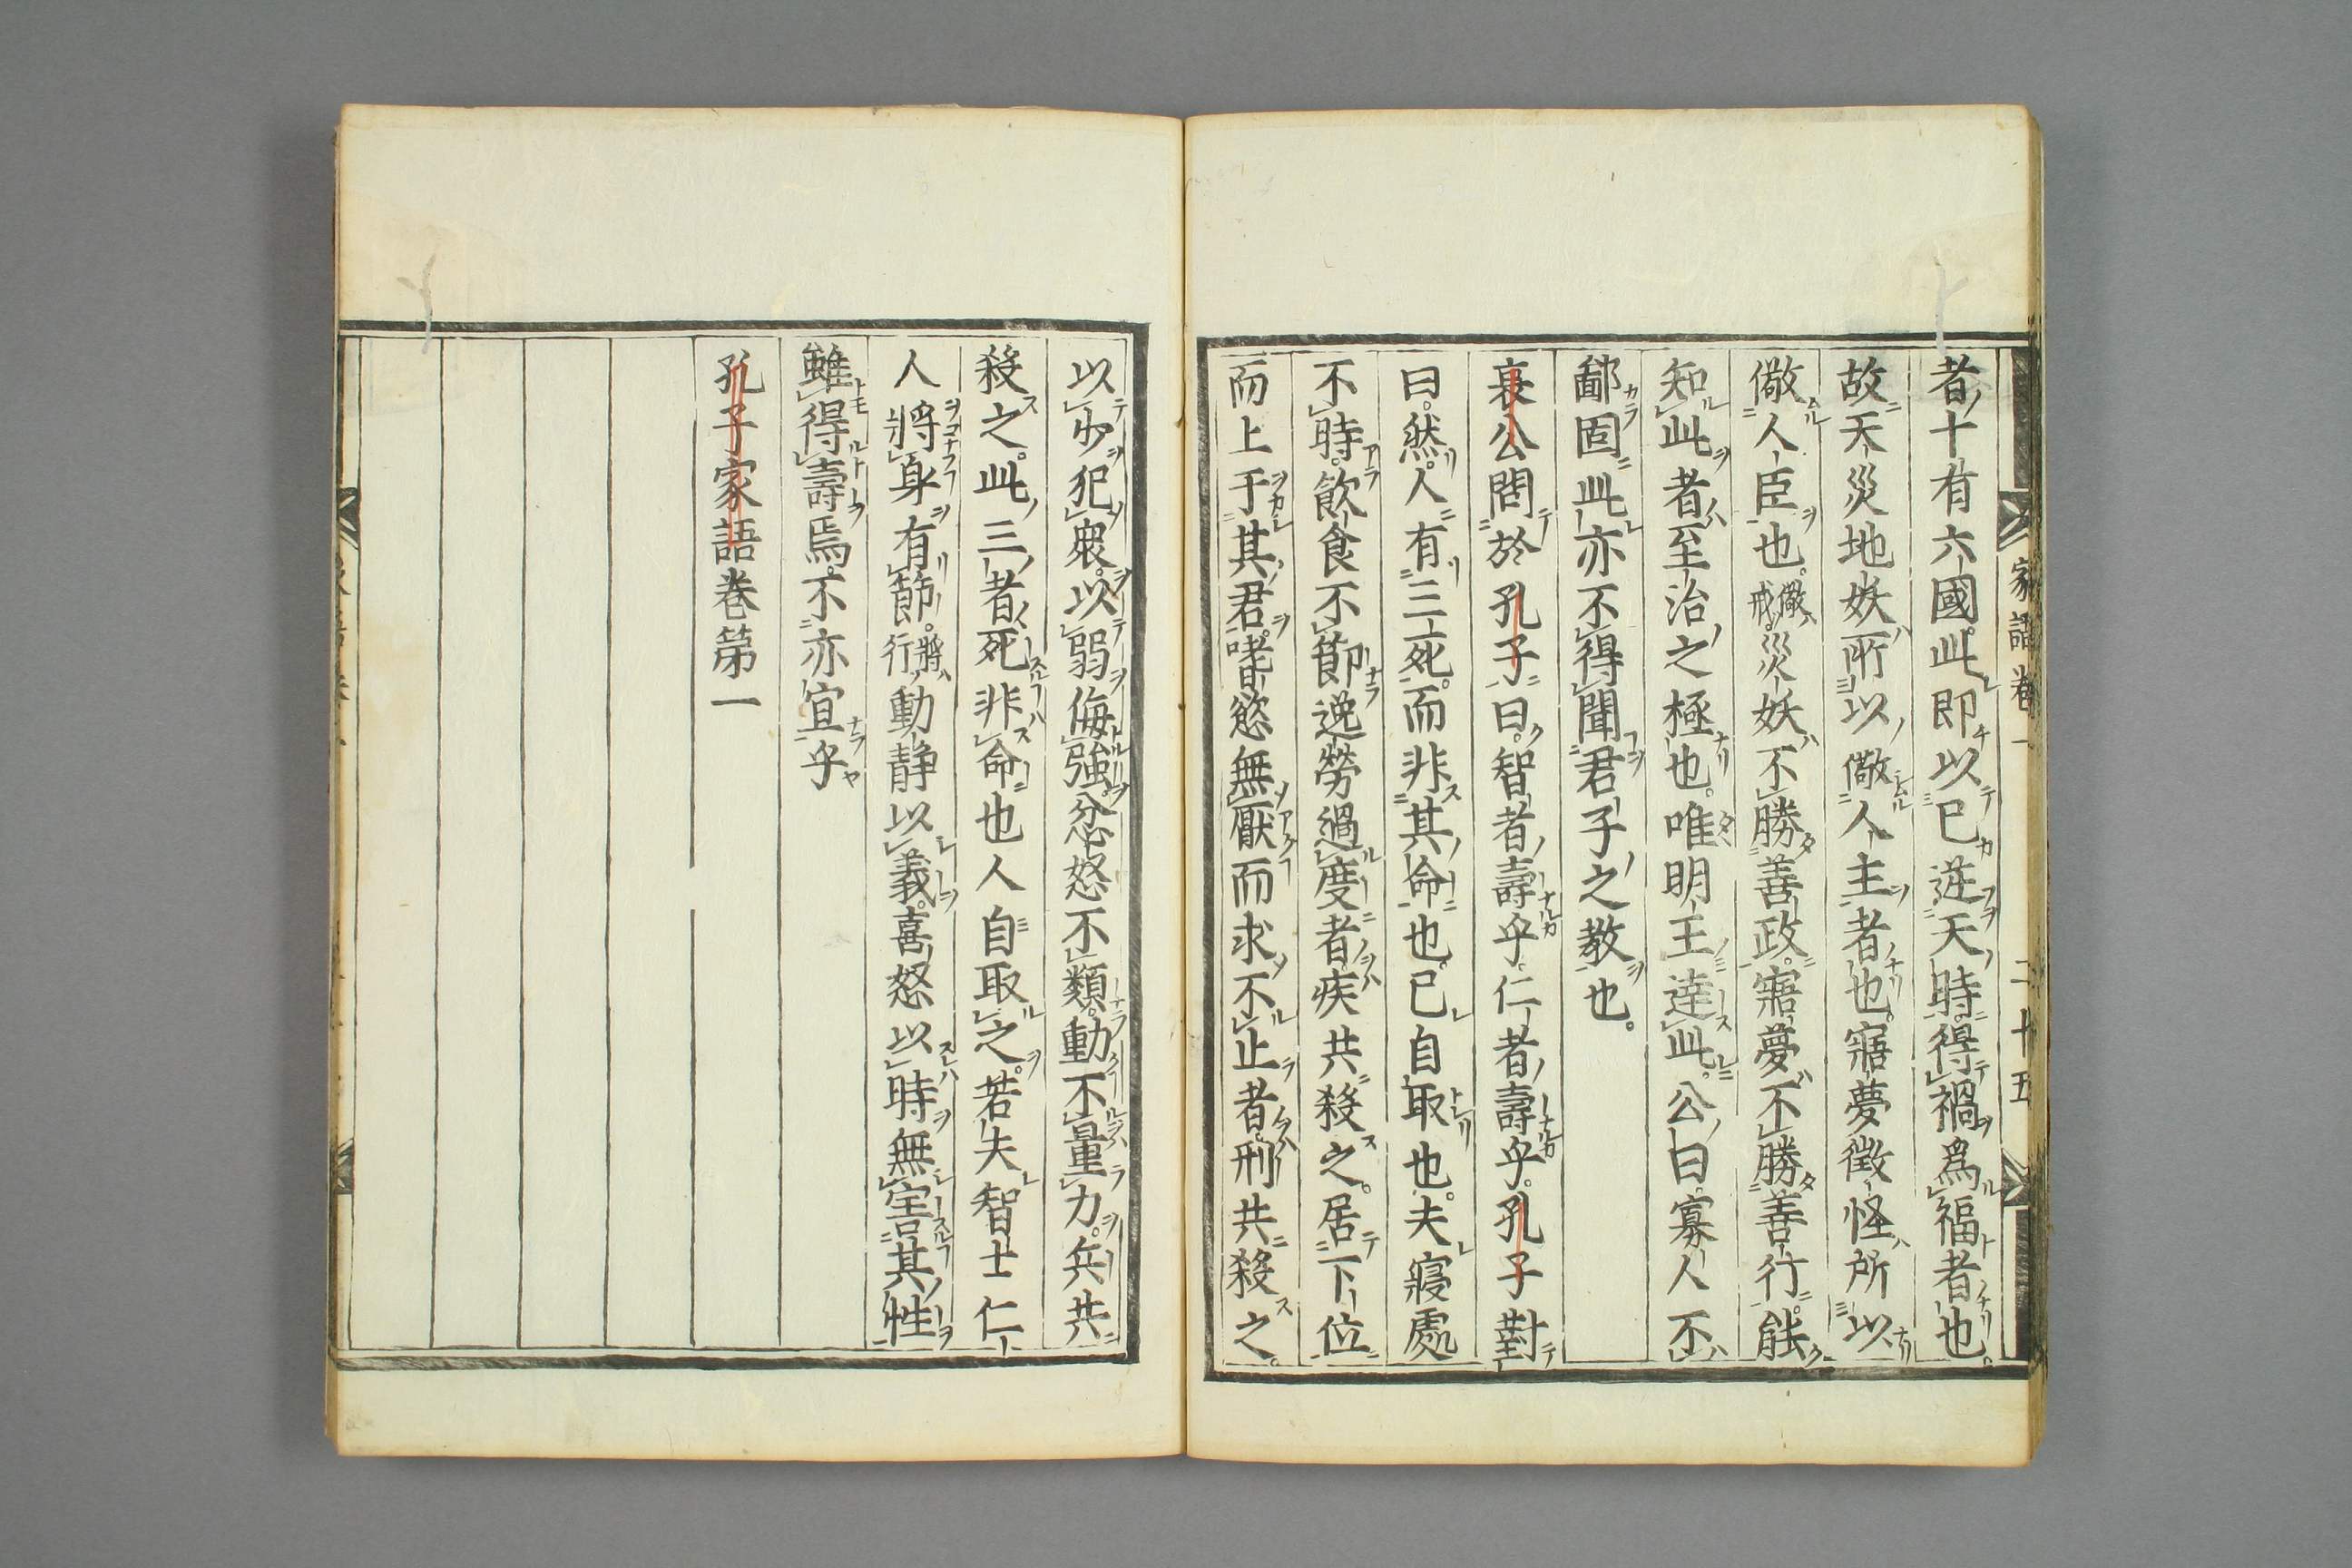 者十有六國此即以已逆天時得禍爲福者也
故天災地妖所以儆人主者也寤夢徵怪所以
儆人臣也儆戒災妖不勝善政寤夢不勝善行能
知此者至治之極也唯明王達此公曰寡人不
鄙固此亦不得聞君子之教也
哀公問於孔子曰智者壽乎仁者壽乎孔子對
曰然人有三死而非其命也已自取也夫寢處
不時飲食不節逸勞過度者疾共殺之居下位
而上于其君嗜慾無厭而求不止者刑共殺之
家語卷一 二十五
以少犯衆以弱侮強忿怒不類動不量力兵共
殺之此三者死非命也人自取之若夫智士仁
人將身有節將行動静以義喜怒以時無害其性
雖得壽焉不亦宜乎
孔子家語卷第一